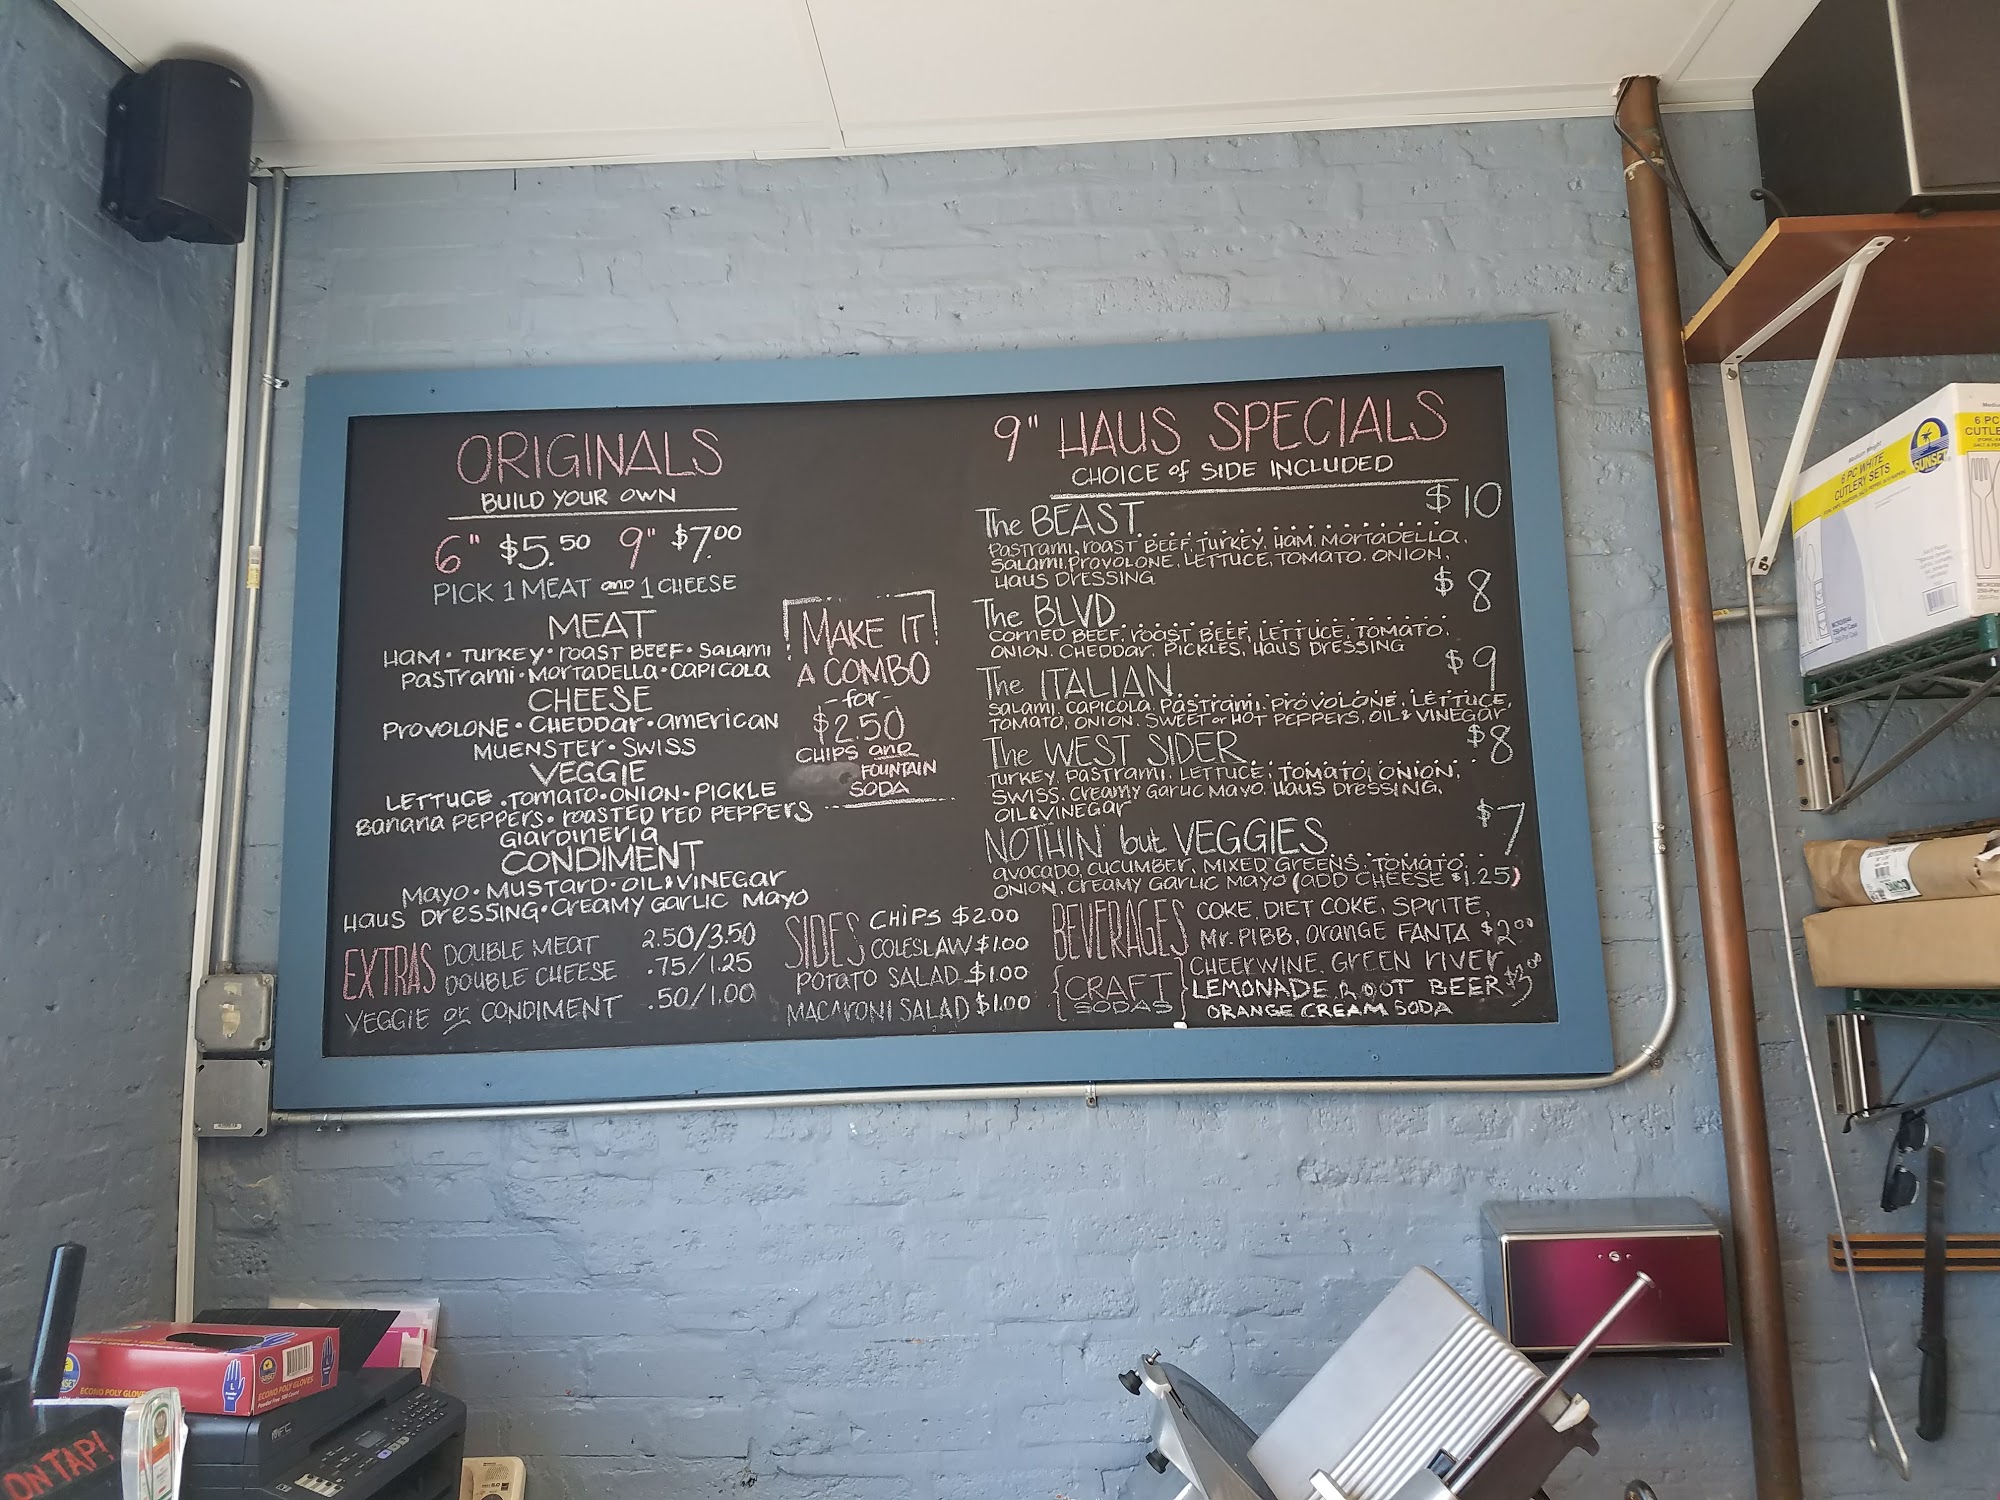 ORIGINALS
BUILD YOUR OWN
6" $5.50 9" $7.00
PICK 1 MEAT and 1 CHEESE
MEAT
HAM · TURKEY · ROAST BEEF · SALAMI
PASTRAMI · MORTADELLA · CAPICOLA
CHEESE
PROVOLONE · CHEDDAR · AMERICAN
MUENSTER · SWISS
VEGGIE
LETTUCE . TOMATO · ONION · PICKLE
BANANA PEPPERS · ROASTED RED PEPPERS
GIARDINERIA
CONDIMENT
MAYO · MUSTARD · OIL & VINEGAR
HAUS DRESSING · CREAMY GARLIC MAYO
EXTRAS DOUBLE MEAT 2.50/3.50
DOUBLE CHEESE .75/1.25
VEGGIE or CONDIMENT .50/1.00
MAKE IT
A COMBO
-for-
$2.50
CHIPS and
FOUNTAIN
SODA
SIDES CHIPS $2.00
COLESLAW $1.00
POTATO SALAD $1.00
MACARONI SALAD $1.00
9" HAUS SPECIALS
CHOICE of SIDE INCLUDED
The BEAST $10
PASTRAMI, ROAST BEEF, TURKEY, HAM, MORTADELLA,
SALAMI, PROVOLONE, LETTUCE, TOMATO, ONION,
HAUS DRESSING
The BLVD $8
CORNED BEEF, ROAST BEEF, LETTUCE, TOMATO,
ONION, CHEDDAR, PICKLES, HAUS DRESSING
The ITALIAN $9
SALAMI, CAPICOLA, PASTRAMI, PROVOLONE, LETTUCE,
TOMATO, ONION, SWEET or HOT PEPPERS, OIL & VINEGAR
The WEST SIDER $8
TURKEY, PASTRAMI, LETTUCE, TOMATO, ONION,
SWISS, CREAMY GARLIC MAYO, HAUS DRESSING,
OIL & VINEGAR
NOTHIN' but VEGGIES $7
AVOCADO, CUCUMBER, MIXED GREENS, TOMATO,
ONION, CREAMY GARLIC MAYO (ADD CHEESE $1.25)
BEVERAGES COKE, DIET COKE, SPRITE,
MR. PIBB, ORANGE FANTA $2.00
{CRAFT SODAS} CHEERWINE, GREEN RIVER
LEMONADE, ROOT BEER $3.00
ORANGE CREAM SODA
6 PC WHITE
CUTLERY SETS
SUNSET
6 PC
ECONO POLY GLOVES
ECONO POLY GLOVES
SUNSET
L
MFC
ON TAP!